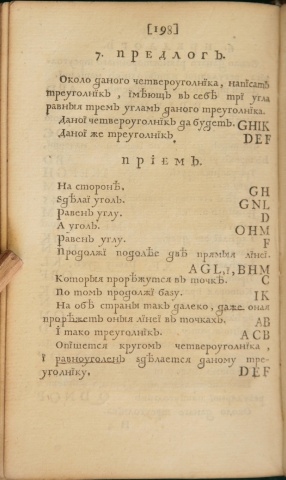 [198]
7. ПРЕДЛОГЪ.
Около даного четвероуголнїка, напїсать
треуголнїкъ, їмѣющъ въ себѣ трї угла
равныя тремъ угламъ даного треуголнїка.
Даної четвероуголнїкъ да будетъ. GHIK
Даної же треуголнїкъ DEF
ПРЇЕМЪ.
На сторонѣ. GH
Здѣлаї уголъ. GNL
Равенъ углу. D
А уголъ. OHM
Равенъ углу. F
Продолжї подолѣе двѣ прямыя лїнеї.
AGL, ї, BHM
Которыя прорѣжутся въ точкѣ. C
По томъ продолжї базу. IK
На обѣ страны такъ далеко, даже оная
прорѣжетъ оныя лїнеї въ точкахъ. AB
Ї тако треуголнїкъ. ACB
Опїшется кругомъ четвероуголнїка,
ї равноуголенъ здѣлается даному тре-
уголнїку. DEF